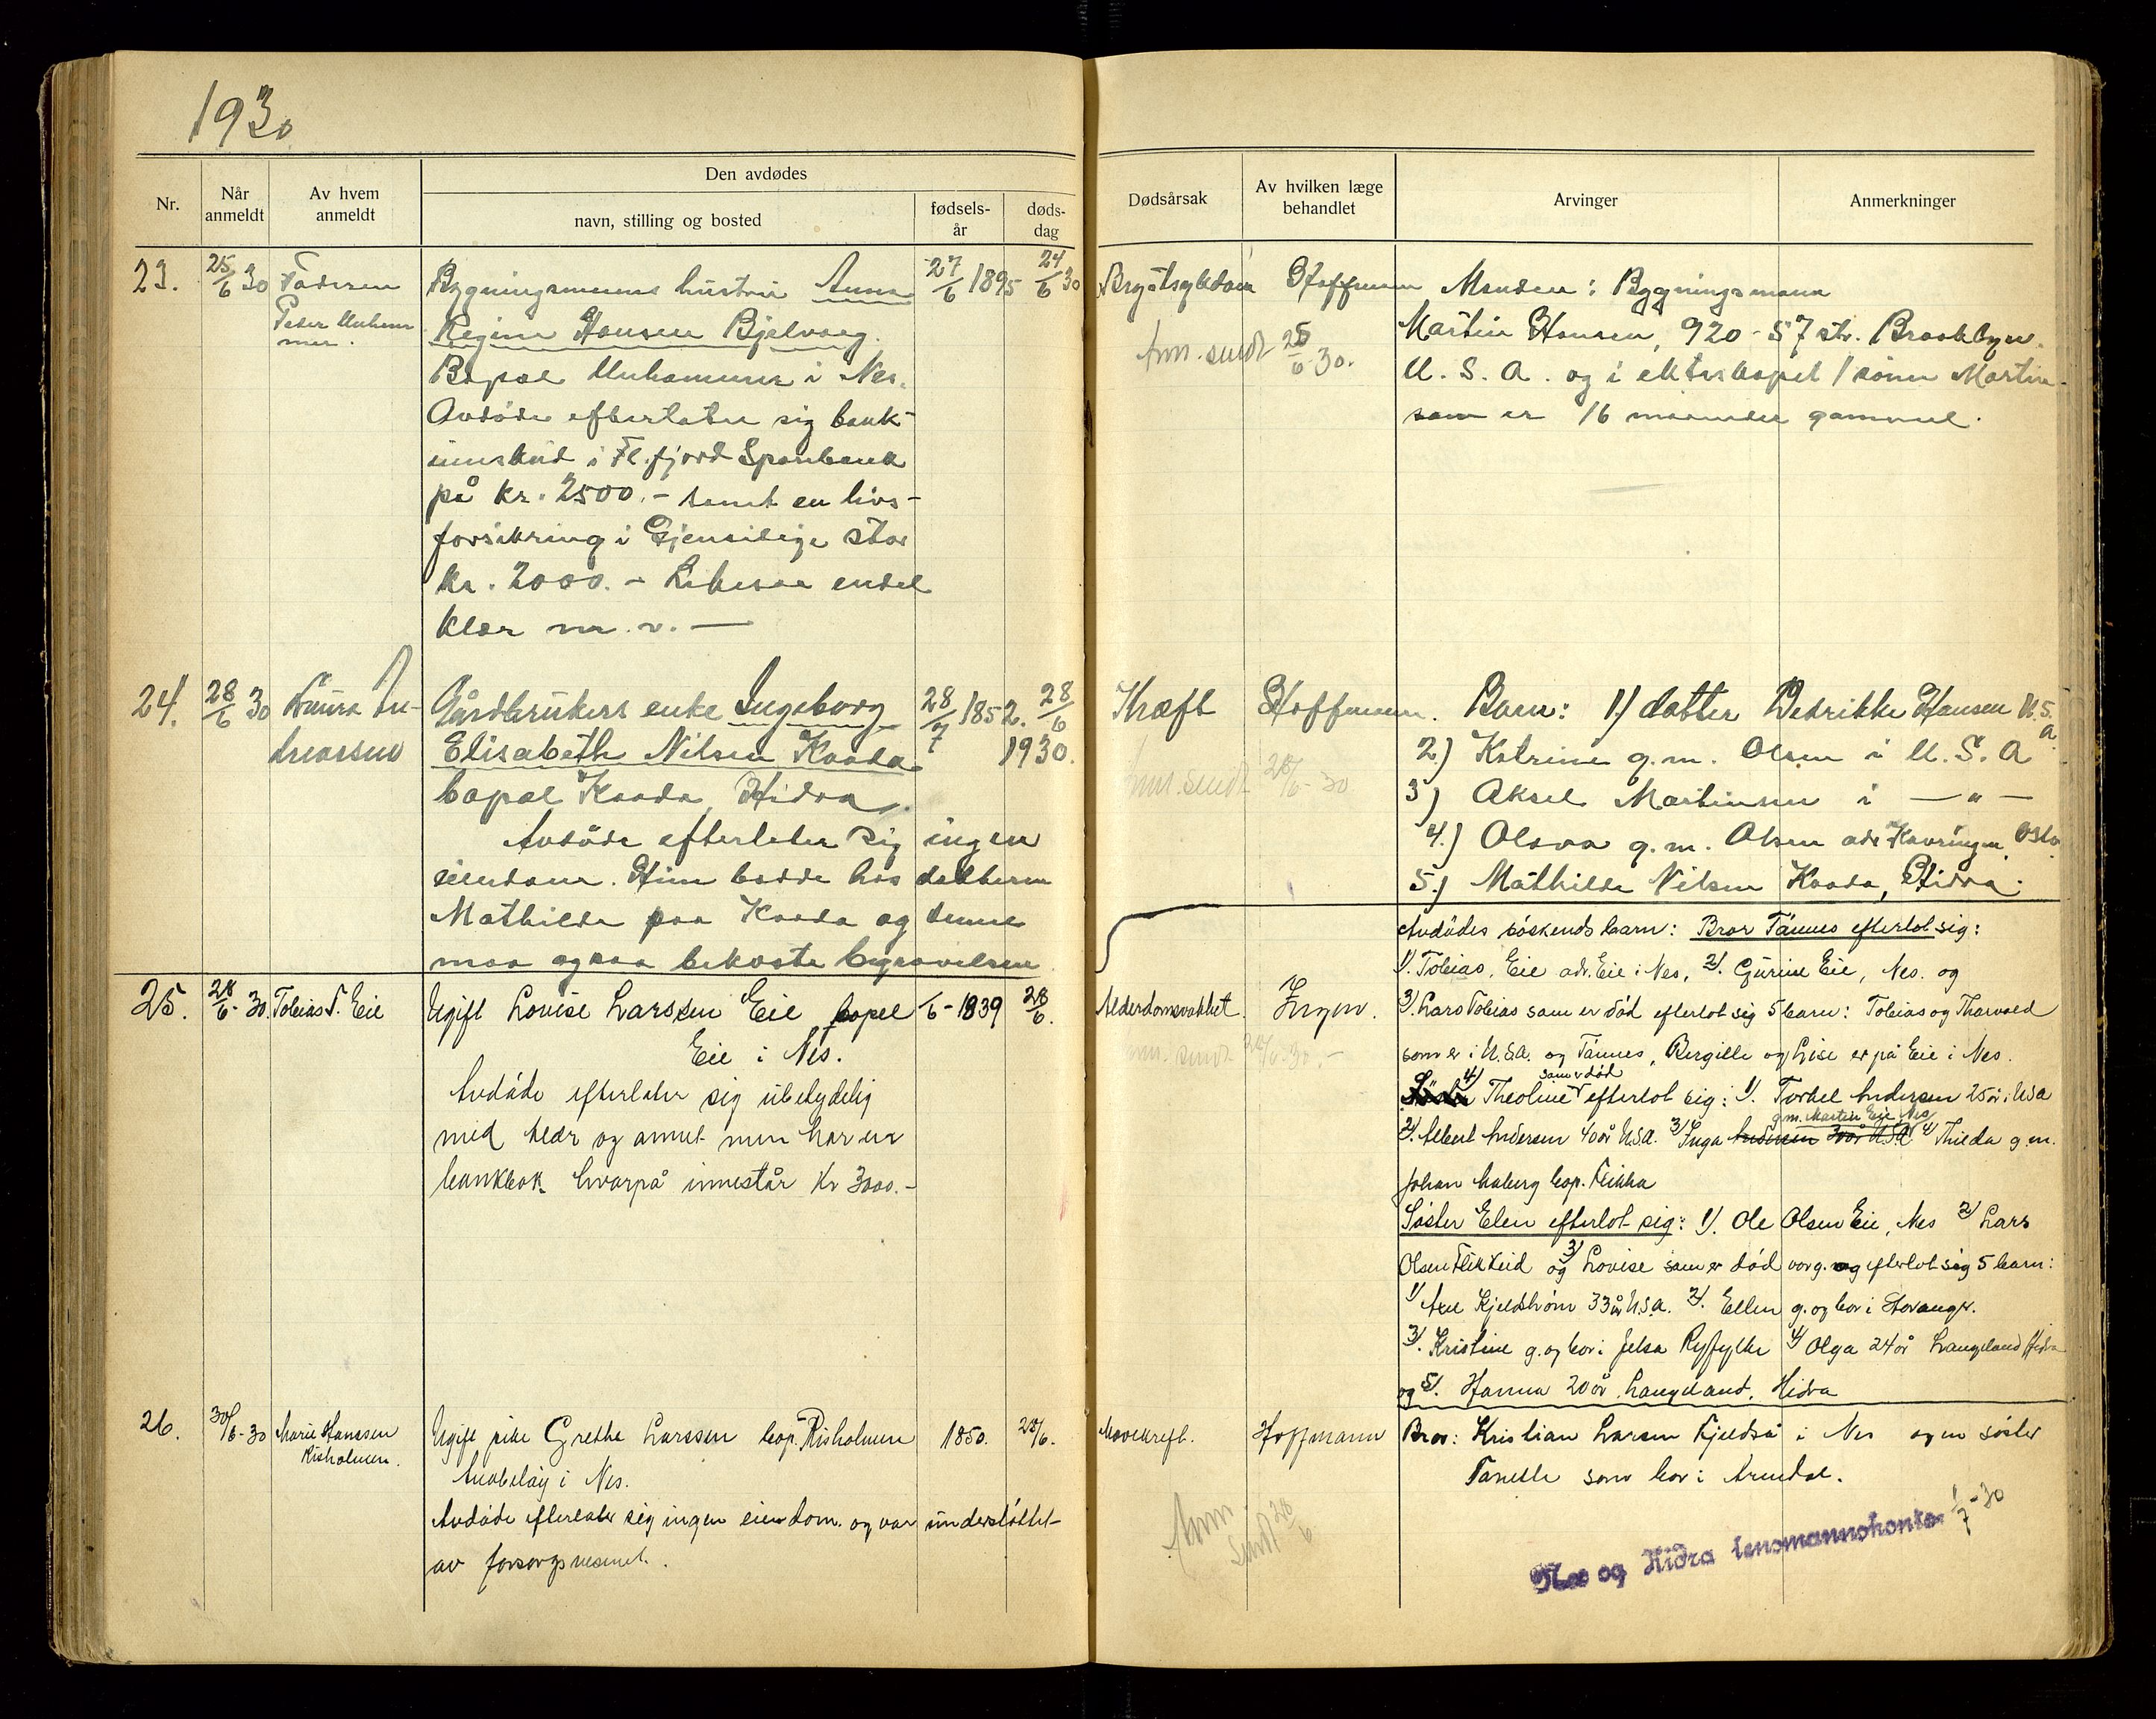 1930
Nr.
Når anmeldt
Av hvem anmeldt
Den avdødes
navn, stilling og bosted
fødsels-
år
døds-
dag
Dødsårsak
Av hvilken læge
behandlet
Arvinger
Anmerkninger
23.
25/6 30
Faderen
Peder
Bygningsmanns hustru Anna
Regine Hansen Bjelvaag.
Bopæl Unhammer i Nes.
Avdøde efterlater sig bank-
innskud i Fl.fjord Sparebank
på kr. 2500.- samt en livs-
forsikring i Gjensidige stor
kr. 2000. - Likesaa endel
klær m.v. —
27/6 1895
24/6 30
Brystsykdom
Hoffmann
Anm. sendt 25/6 30.
Manden: Bygningsmann
Martin Hansen, 920 - 57 str. Brooklyn.
U.S.A. og i ekteskapet 1 sønn Martin
som er 16 maaneder gammel.
24.
28/6 30
Laura An-
dreassen
Gårdbrukers enke Ingeborg
Elisabeth Nilsen Kaada
bopæl Kaada, Hidra.
Avdøde efterlater sig ingen
eiendom. Hun bodde hos datteren
Mathilde paa Kaada og denne
maa ogsaa bekoste begravelsen
28/7 1852.
28/6
1930.
Kræft
Hoffmann.
Anm. sendt 28/6 - 30
Barn: 1) datter Hansen U.S.A
2) Katrine g.m. Olsen i U.S.A
3) Aksel Martinsen i — " —
4.) Olava g.m. Olsen adr. Kavringen Oslo
5.) Mathilde Nilsen Kaada, Hidra.
25.
28/6 - 30.
Tobias T. Eie
Ugift Lovise Larssen Eie bopel
Eie i Nes.
Avdøde efterlater sig ubetydelig
med klær og annet men har en
bankbok hvorpå innestår Kr 3000.-
/6 - 1839
28/6.
Alderdomsvakhet.
Ingen.
Anm. sendt 28/6-30.-
Avdødes søskends barn: Bror Tønnes efterlot sig:
1). Tobias, Eie adr. Eie i Nes, 2). Gurine Eie, Nes. og
3) Lars Tobias som er død efterlot sig 5 barn: Tobias og Thorvald
som er i U.S.A. og Tønnes, Bergitte og Lise er på Eie i Nes.
4) Theoline som er død efterlot sig: 1). Torkel Andersen 25 år i USA
g.m. Martin Eie Nes
2). Albert Andersen 40 år U.S.A. 3) Inga Andersen 30 år USA 4) Thilda g.m.
Johan bop.
Søster Elen efterlot sig: 1). Ole Olsen Eie, Nes 2) Lars
Olsen Flikkeid og 3) Lovise som er død var g. og efterlot sig 5 barn:
1) Kjeldstrøm 33 år U.S.A. 2). Ellen g. og bor i Stavanger.
3). Kristine g. og bor i Jelsa Ryfylke 4) Olga 24 år Langeland Hidra
og 5). Hanna 20 år, Langeland, Hidra
26.
30/6 - 30
Marie Hanssen
Risholmen.
Ugift pike Grethe Larssen bop. Risholmen
Anabeløy i Nes.
Avdøde efterlater sig ingen eiendom. og var understøttet
av forsorgsvesenet.
1850.
28/6.
Mavekreft.
Hoffmann
Anm. sendt 28/6
Bror: Kristian Larsen Fjeldså i Nes og en søster
Tonette som bor i Arendal.
Nes og Hidra lensmannskontor 1/7 - 30